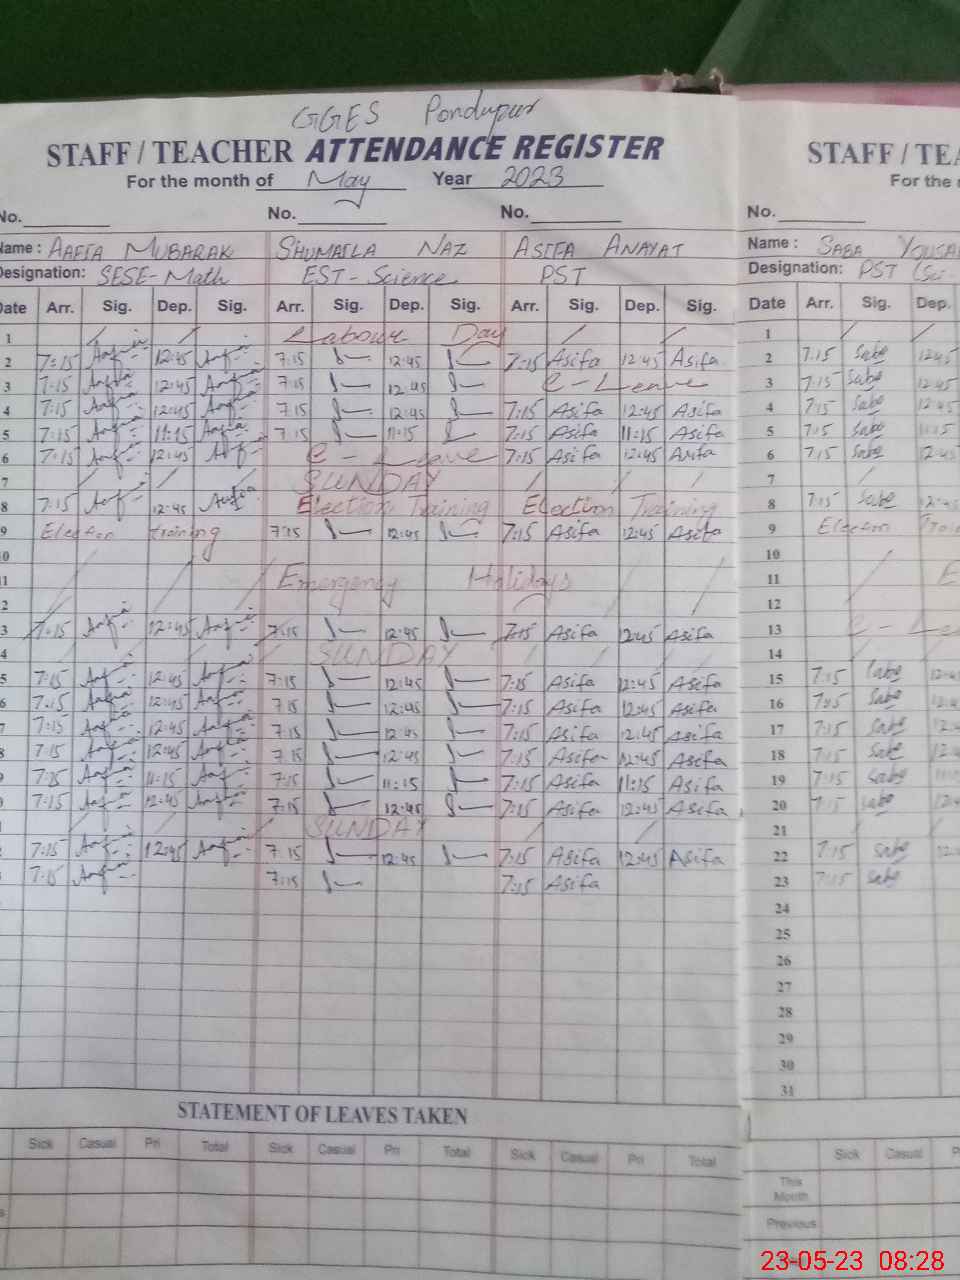 GGES Pondupur
STAFF / TEACHER ATTENDANCE REGISTER
For the month of May Year 2023
No. No. No.
Name : AAFIA MUBARAK SHUMAILA NAZ ASIFA ANAYAT
Designation: SESE-Math EST-Science PST
Date Arr. Sig. Dep. Sig. Arr. Sig. Dep. Sig. Arr. Sig. Dep. Sig.
1 Labour Day
2 7:15 12:45 7:15 12:45 7:15 Asifa 12:45 Asifa
3 7:15 12:45 7:15 12:45 C-Leave
4 7:15 12:45 7:15 12:45 7:15 Asifa 12:45 Asifa
5 7:15 11:15 7:15 11:15 7:15 Asifa 11:15 Asifa
6 7:15 12:45 C-Leave 7:15 Asifa 12:45 Asifa
7 SUNDAY
8 7:15 12:45 Election Training Election Training
9 Election training 7:15 12:45 7:15 Asifa 12:45 Asifa
0
1 Emergency Holidays
2
3 7:15 12:45 7:15 12:45 7:15 Asifa 12:45 Asifa
4 SUNDAY
5 7:15 12:45 7:15 12:45 7:15 Asifa 12:45 Asifa
6 7:15 12:45 7:15 12:45 7:15 Asifa 12:45 Asifa
7 7:15 12:45 7:15 12:45 7:15 Asifa 12:45 Asifa
8 7:15 12:45 7:15 12:45 7:15 Asifa 12:45 Asifa
9 7:15 11:15 7:15 11:15 7:15 Asifa 11:15 Asifa
7:15 12:45 7:15 12:45 7:15 Asifa 12:45 Asifa
SUNDAY
7:15 12:45 7:15 12:45 7:15 Asifa 12:45 Asifa
7:15 7:15 7:15 Asifa
STATEMENT OF LEAVES TAKEN
Sick Casual Pri Total Sick Casual Pri Total Sick Casual Pri Total
STAFF / TEA
For the
No.
Name : SABA YOUSA
Designation: PST (Sci
Date Arr. Sig. Dep.
1
2 7:15 Saba 12:45
3 7:15 Saba 12:45
4 7:15 Saba 12:45
5 7:15 Saba 11:15
6 7:15 Saba 12:45
7
8 7:15 Saba 12:4
9 Election Train
10
11 E
12
13 C-Le
14
15 7:15 Saba 12:4
16 7:15 Saba 12:4
17 7:15 Saba 12:4
18 7:15 Saba 12:4
19 7:15 Saba 11:1
20 7:15 Saba 12:4
21
22 7:15 Saba 12:
23 7:15 Saba
24
25
26
27
28
29
30
31
Sick Casual P
This
Month
Previous
23-05-23 08:28